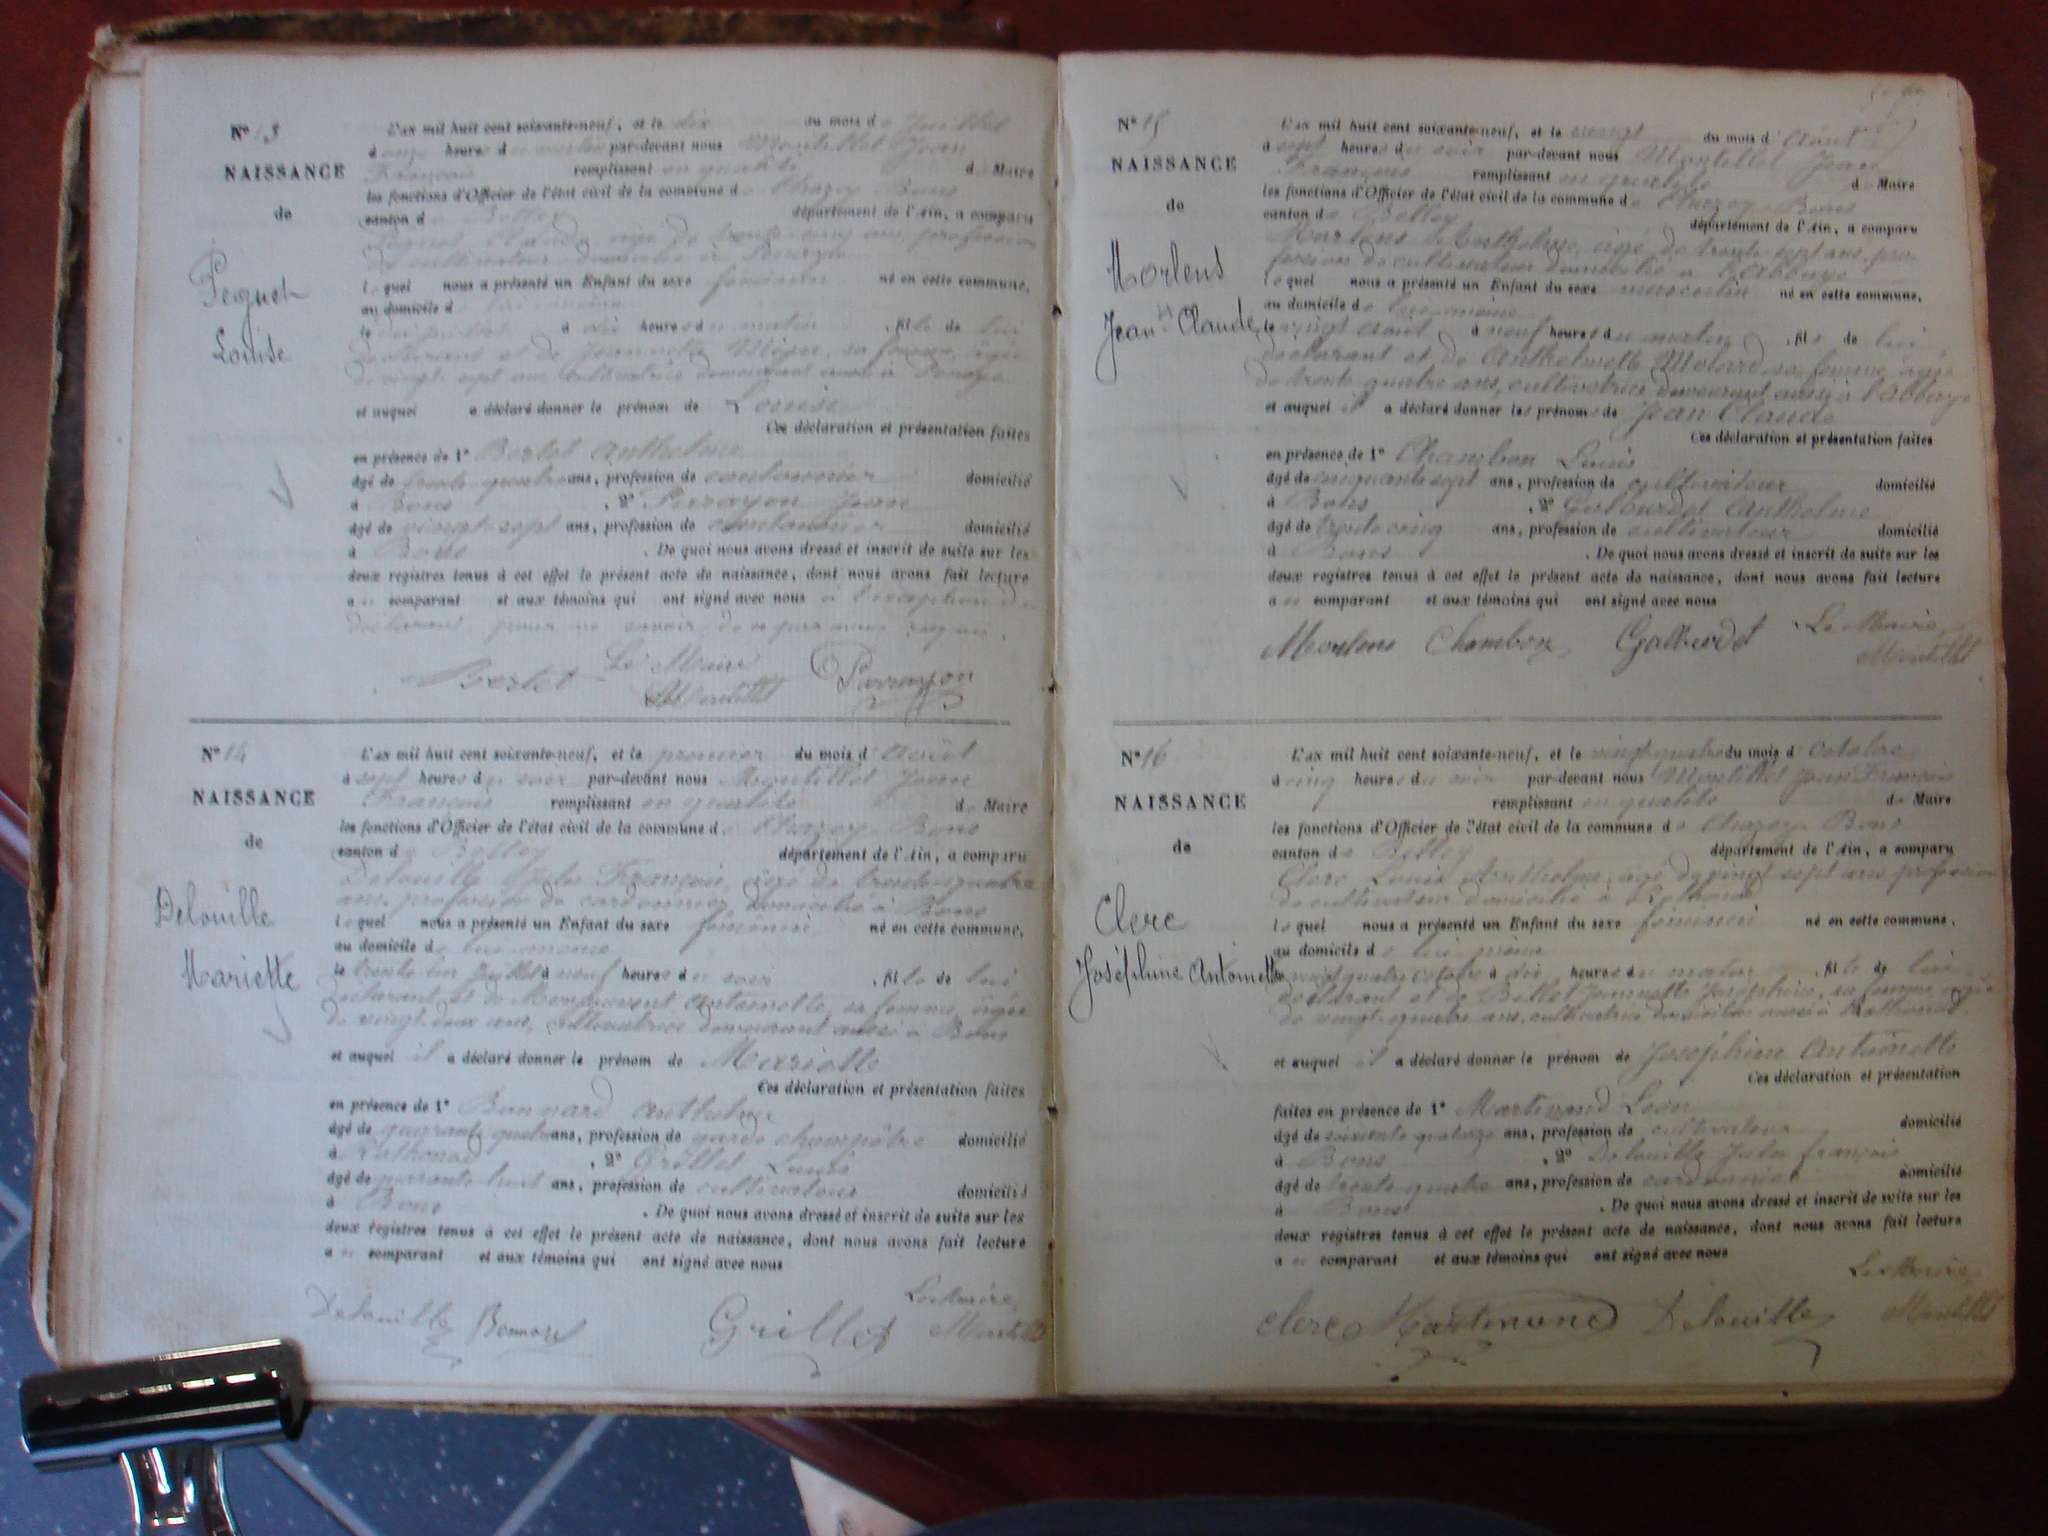 N° 13
NAISSANCE
de
Pequet
Louise
L'an mil huit cent soixante-neuf, et le dix du mois de Juillet
à onze heures du matin par-devant nous Montillet Jean
François remplissant en qualité de Maire
les fonctions d'Officier de l'état civil de la commune de Chazey Bons
canton de Belley département de l'Ain, a comparu
Claude, âgé de trente cinq ans, profession
de cultivateur domicilié à
lequel nous a présenté un Enfant du sexe féminin né en cette commune,
au domicile de lui même
le dix juillet à six heures du matin, fille de lui
déclarant et de Jeannette sa femme, âgée
de vingt sept ans, cultivatrice demeurant aussi à
et auquel a déclaré donner le prénom de Louise
Ces déclaration et présentation faites
en présence de 1° Bertet Anthelme
âgé de trente quatre ans, profession de cantonnier domicilié
à Bons, 2° Perrayon Jean
âgé de vingt sept ans, profession de cantonnier domicilié
à Bons. De quoi nous avons dressé et inscrit de suite sur les
deux registres tenus à cet effet le présent acte de naissance, dont nous avons fait lecture
au comparant et aux témoins qui ont signé avec nous à l'exception du
déclarant, pour ne savoir, de ce par nous requis.
Bertet Le Maire Perrayon
Montillet
N° 14
NAISSANCE
de
Delouille
Mariette
L'an mil huit cent soixante-neuf, et le premier du mois d'Août
à sept heures du soir par-devant nous Montillet Jean
François remplissant en qualité de Maire
les fonctions d'Officier de l'état civil de la commune de Chazey Bons
canton de Belley département de l'Ain, a comparu
Delouille Jules François, âgé de trente quatre
ans, profession de cordonnier domicilié à Bons
lequel nous a présenté un Enfant du sexe féminin né en cette commune,
au domicile de lui même
le trente un Juillet à neuf heures du soir, fille de lui
déclarant et de Antoinette, sa femme, âgée
de vingt deux ans, cultivatrice demeurant aussi à Bons
et auquel il a déclaré donner le prénom de Mariette
Ces déclaration et présentation faites
en présence de 1° Bonnard Anthelme
âgé de quarante quatre ans, profession de garde champêtre domicilié
à Rothonod, 2° Grillet Louis
âgé de quarante huit ans, profession de cultivateur domicilié
à Bons. De quoi nous avons dressé et inscrit de suite sur les
deux registres tenus à cet effet le présent acte de naissance, dont nous avons fait lecture
au comparant et aux témoins qui ont signé avec nous
Le Maire,
Delouille Bonnard Grillet Montillet
N° 15
NAISSANCE
de
Morlens
Jean Claude
L'an mil huit cent soixante-neuf, et le vingt du mois d'Août
à sept heures du soir par-devant nous Montillet Jean
François remplissant en qualité de Maire
les fonctions d'Officier de l'état civil de la commune de Chazey Bons
canton de Belley département de l'Ain, a comparu
Morlens Anthelme, âgé de trente sept ans, pro-
fession de cultivateur domicilié à l'Abbaye
lequel nous a présenté un Enfant du sexe masculin né en cette commune,
au domicile de lui même
le vingt Août à neuf heures du matin, fils de lui
déclarant et de Anthelmette Molard, sa femme, âgée
de trente quatre ans, cultivatrice demeurant aussi à l'Abbaye
et auquel il a déclaré donner les prénoms de Jean Claude
Ces déclaration et présentation faites
en présence de 1° Chambon Louis
âgé de cinquante sept ans, profession de cultivateur domicilié
à Bons, 2° Galburdet Anthelme
âgé de trente cinq ans, profession de cultivateur domicilié
à Bons. De quoi nous avons dressé et inscrit de suite sur les
deux registres tenus à cet effet le présent acte de naissance, dont nous avons fait lecture
au comparant et aux témoins qui ont signé avec nous
Morlens Chambon Galburdet Le Maire,
Montillet
N° 16
NAISSANCE
de
Clerc
Joséphine Antoinette
L'an mil huit cent soixante-neuf, et le vingt quatre du mois d'octobre
à cinq heures du soir par-devant nous Montillet Jean François
remplissant en qualité de Maire
les fonctions d'Officier de l'état civil de la commune de Chazey Bons
canton de Belley département de l'Ain, a comparu
Clerc Louis Anthelme, âgé de vingt sept ans, profession
de cultivateur domicilié à Rothonod
lequel nous a présenté un Enfant du sexe féminin né en cette commune,
au domicile de lui même
le vingt quatre octobre à dix heures du matin, fille de lui
déclarant et de Billet Jeannette Joséphine, sa femme, âgée
de vingt quatre ans, cultivatrice domiciliée aussi à Rothonod.
et auquel il a déclaré donner le prénom de Joséphine Antoinette
Ces déclaration et présentation
faites en présence de 1° Martinand Léon
âgé de soixante quatorze ans, profession de cultivateur domicilié
à Bons, 2° Delouille Jules françois
âgé de trente quatre ans, profession de cordonnier domicilié
à Bons. De quoi nous avons dressé et inscrit de suite sur les
deux registres tenus à cet effet le présent acte de naissance, dont nous avons fait lecture
au comparant et aux témoins qui ont signé avec nous
Le Maire,
Clerc Martinand Delouille Montillet